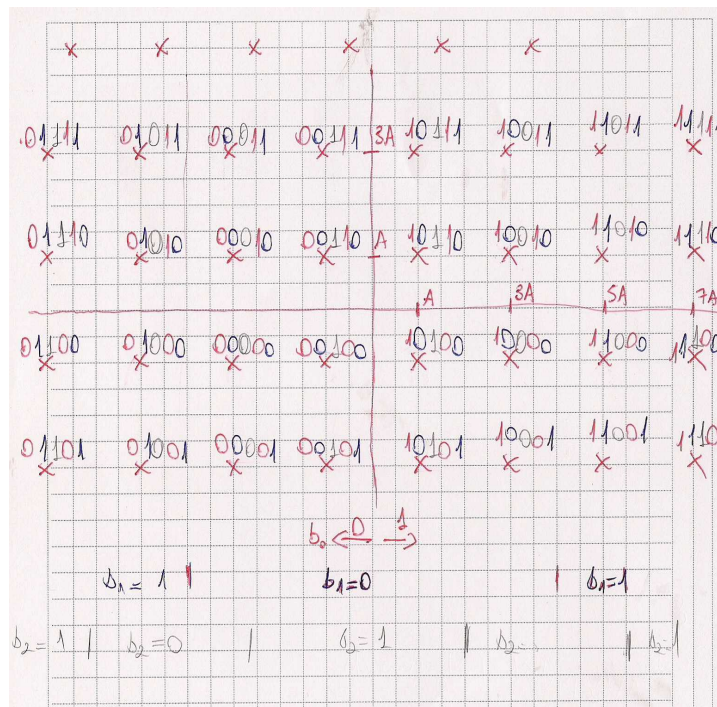 01111 01011 00011 00111 3A 10111 10011 11011 1111
01110 01010 00010 00110 A 10110 10010 11010 11110
A 3A 5A 7A
01100 01000 00000 00100 10100 10000 11000 11100
01101 01001 00001 00101 10101 10001 11001 1110
b0 0 1
b1 = 1 b1=0 b1=1
b2 = 1 b2=0 b2= 1 b2= b2=1